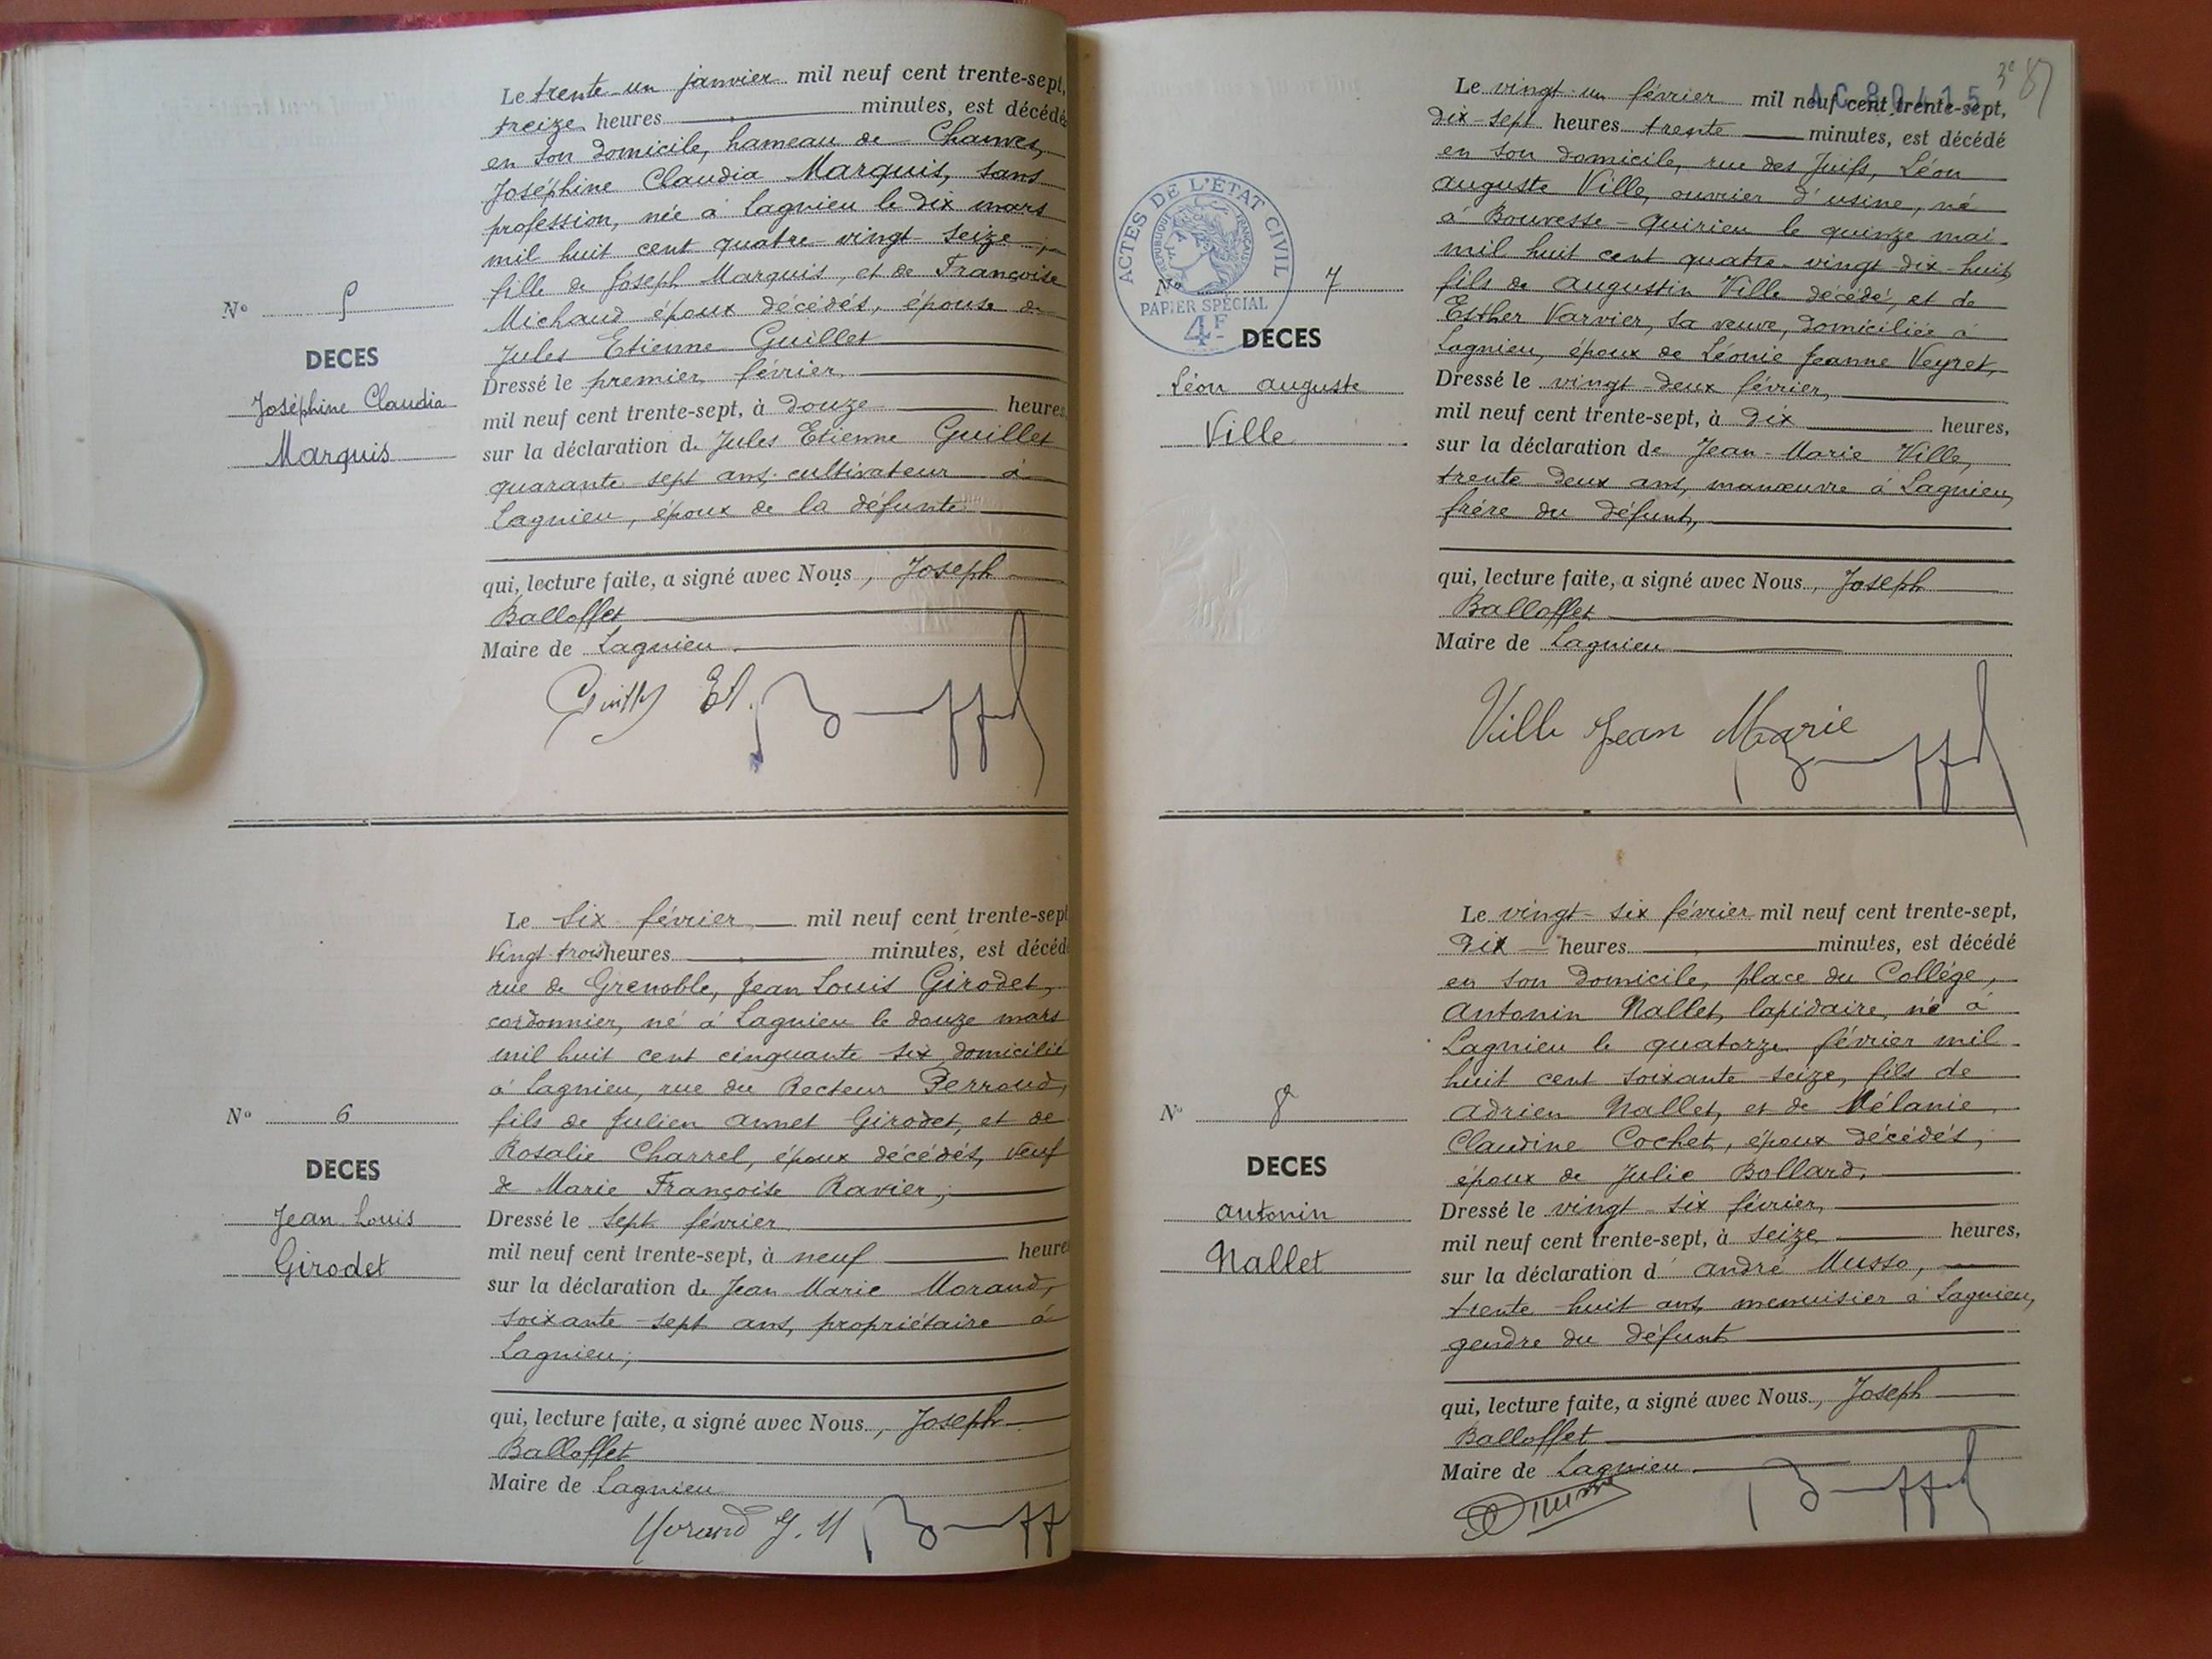 Le trente-un janvier mil neuf cent trente-sept,
treize heures minutes, est décédé
en son domicile, hameau de
Joséphine Claudia Marquis, sans
profession, née à Lagnieu le dix mars
mil huit cent quatre-vingt-seize,
fille de Joseph Marquis, et de Françoise
Michaud époux décédés, épouse de
Jules Etienne Guillet
Nº 5
DECES
Joséphine Claudia
Marquis
Dressé le premier février,
mil neuf cent trente-sept, à douze heures
sur la déclaration de Jules Etienne Guillet
quarante-sept ans, cultivateur à
Lagnieu, époux de la défunte
qui, lecture faite, a signé avec Nous, Joseph
Balloffet
Maire de Lagnieu.
Le six février mil neuf cent trente-sept
vingt-trois heures minutes, est décédé
rue de Grenoble, Jean Louis Girodet,
cordonnier, né à Lagnieu le douze mars
mil huit cent cinquante-six, domicilié
à Lagnieu, rue du Recteur Perroud,
fils de Julien Annet Girodet, et de
Rosalie Charrel, époux décédés, veuf
de Marie Françoise Ravier;
Nº 6
DECES
Jean Louis
Girodet
Dressé le sept février
mil neuf cent trente-sept, à neuf heure
sur la déclaration de Jean Marie Morand,
soixante-sept ans, propriétaire à
Lagnieu;
qui, lecture faite, a signé avec Nous, Joseph
Balloffet
Maire de Lagnieu
Morand J. M
3e 87
Le vingt-un février mil neuf cent trente-sept,
dix-sept heures trente minutes, est décédé
en son domicile, rue des Juifs, Léon
Auguste Ville, ouvrier d'usine, né
à Bouvesse-Quirieu le quinze mai
mil huit cent quatre-vingt-dix-huit,
fils de Augustin Ville décédé, et de
Esther Varvier, sa veuve, domiciliée à
Lagnieu, époux de Léonie Jeanne Veyret,
ACTES DE L'ÉTAT CIVIL
RÉPUBLIQUE FRANÇAISE
PAPIER SPÉCIAL
4F
Nº 7
DECES
Léon Auguste
Ville
Dressé le vingt-deux février,
mil neuf cent trente-sept, à dix heures,
sur la déclaration de Jean-Marie Ville,
trente-deux ans, manœuvre à Lagnieu,
frère du défunt,
qui, lecture faite, a signé avec Nous, Joseph
Balloffet
Maire de Lagnieu
Ville Jean Marie
Le vingt-six février mil neuf cent trente-sept,
dix heures minutes, est décédé
en son domicile, place du Collège,
Antonin Nallet, lapidaire, né à
Lagnieu le quatorze février mil
huit cent soixante-seize, fils de
Adrien Nallet, et de Mélanie
Claudine Cochet, époux décédés,
époux de Julie Bollard,
Nº 8
DECES
Antonin
Nallet
Dressé le vingt-six février,
mil neuf cent trente-sept, à seize heures,
sur la déclaration d'André Musso,
trente-huit ans, menuisier à Lagnieu,
gendre du défunt
qui, lecture faite, a signé avec Nous, Joseph
Balloffet
Maire de Lagnieu.